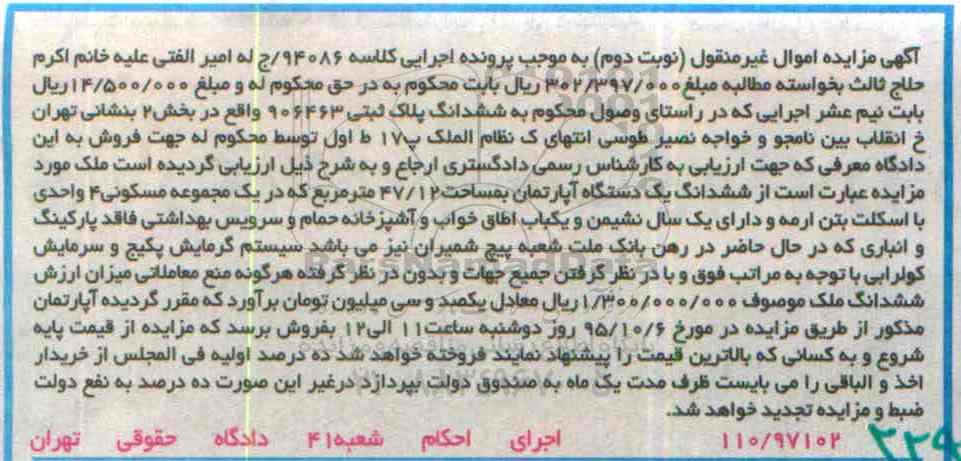 آگهی مزایده اموال غیرمنقول (نوبت دوم) به موجب پرونده اجرایی کلاسه ۹۴۰۸۶/ج له امیر الفتی علیه خانم اکرم
حلاج ثالث بخواسته مطالبه مبلغ ۳۰۲/۳۹۷/۰۰۰ ریال بابت محکوم به در حق محکوم له و مبلغ ۱۴/۵۰۰/۰۰۰ ریال
بابت نیم عشر اجرایی که در راستای وصول محکوم به ششدانگ پلاک ثبتی ۹۰۶۴۶۳ واقع در بخش۲ بنشانی تهران
خ انقلاب بین نامجو و خواجه نصیر طوسی انتهای ک نظام الملک پ۱۷ ط اول توسط محکوم له جهت فروش به این
دادگاه معرفی که جهت ارزیابی به کارشناس رسمی دادگستری ارجاع و به شرح ذیل ارزیابی گردیده است ملک مورد
مزایده عبارت است از ششدانگ یک دستگاه آپارتمان بمساحت۴۷/۱۲ مترمربع که در یک مجموعه مسکونی۴ واحدی
با اسکلت بتن ارمه و دارای یک سال نشیمن و یکباب اطاق خواب و آشپزخانه حمام و سرویس بهداشتی فاقد پارکینگ
و انباری که در حال حاضر در رهن بانک ملت شعبه پیچ شمیران نیز می باشد سیستم گرمایش پکیج و سرمایش
کولرابی با توجه به مراتب فوق و با در نظر گرفتن جمیع جهات و بدون در نظر گرفته هرگونه منع معاملاتی میزان ارزش
ششدانگ ملک موصوف ۱/۳۰۰/۰۰۰/۰۰۰ ریال معادل یکصد و سی میلیون تومان برآورد که مقرر گردیده آپارتمان
مذکور از طریق مزایده در مورخ ۹۵/۱۰/۶ روز دوشنبه ساعت۱۱ الی۱۲ بفروش برسد که مزایده از قیمت پایه
شروع و به کسانی که بالاترین قیمت را پیشنهاد نمایند فروخته خواهد شد ده درصد اولیه فی المجلس از خریدار
اخذ و الباقی را می بایست ظرف مدت یک ماه به صندوق دولت بپردازد درغیر این صورت ده درصد به نفع دولت
ضبط و مزایده تجدید خواهد شد.
۱۱۰/۹۷۱۰۲ اجرای احکام شعبه۴۱ دادگاه حقوقی تهران
ParsNamadData